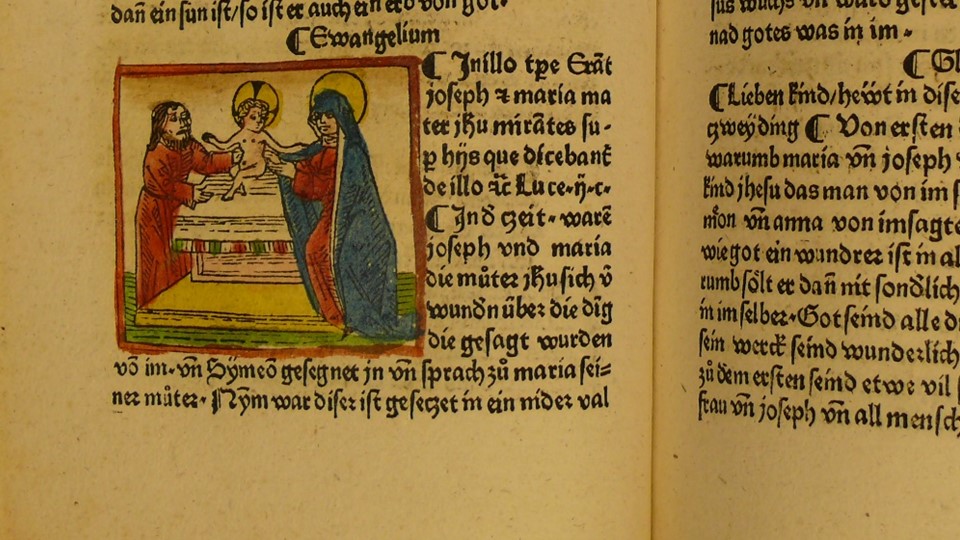 dañ ein sun ist/so ist er auch ein erb von got.
¶ Ewangelium
¶ Jnillo tp̄e Erāt
joseph ⁊ maria ma
ter jh̄u mirātes su-
ꝑ hijs que dicebant̄
de illo ⁊c̄ Luce.ij.c.
¶ Jnd̄ czeit. warē
joseph vnd maria
die můter jh̄u sich v̄
wundn̄ über die dīg
die gesagt wurden
vō im. vn̄ Symeō gesegnet jn vn̄ sprach zů maria sei=
ner můter. Nym war diser ist geseczet in ein nider val
sus wuchs vn̄
nad gotes was in im.
¶ Gl
¶ Lieben kind/hewt in dise
czwey ding ¶ Von ersten
warumb maria vn̄ joseph
kind jhesu das man von im s
mōn vn̄ anna von im sagte
wie got ein wundrer ist in al
rumb sölt er dañ nit sond̄lich
in im selber. Got seind alle d
sein werck seind wunderlich
zů dem ersten seind etwe vil
frau vn̄ joseph vn̄ all mensch